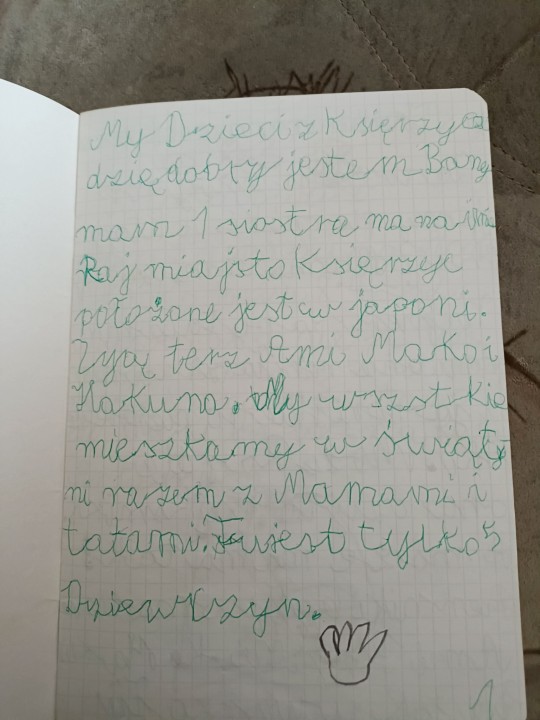 My Dzieci z Księrzyca
dzię dobry jestem Bany
mam 1 siostrę ma na imie
Raj miajsto Księrzyc
położone jest w japoni.
Zyją terz Ami Mako i
Hakuna. My wszstkie
mieszkamy w świąty
ni razem z Mamami i
tatami. Tu jest tylko 5
Dziewczyn.
1